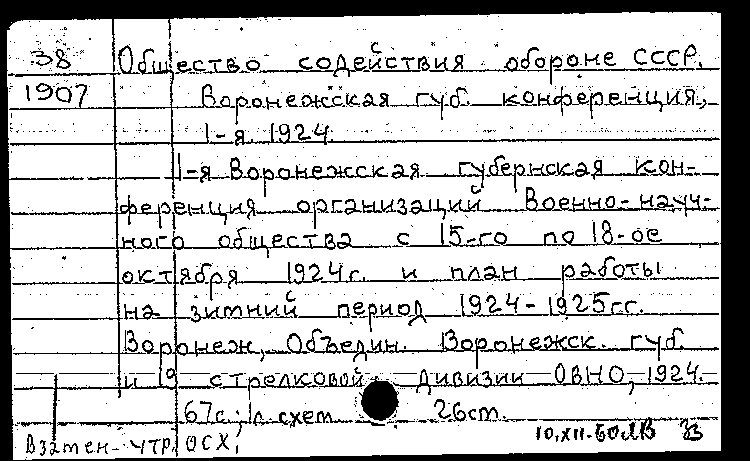 38 Общество содействия обороне СССР.
1907 Воронежская губ. конференция,
1-я. 1924
1-я Воронежская губернская кон-
ференция организаций Военно-науч-
ного общества с 15-го по 18-ое
октября 1924г. и план работы
на зимний период 1924-1925гг.
Воронеж, Объедин. Воронежск. губ.
и 19 стрелковой дивизии ОВНО, 1924.
67с.; 1л. схем 26см.
Взамен утр. ОСХ,
10.XII-60